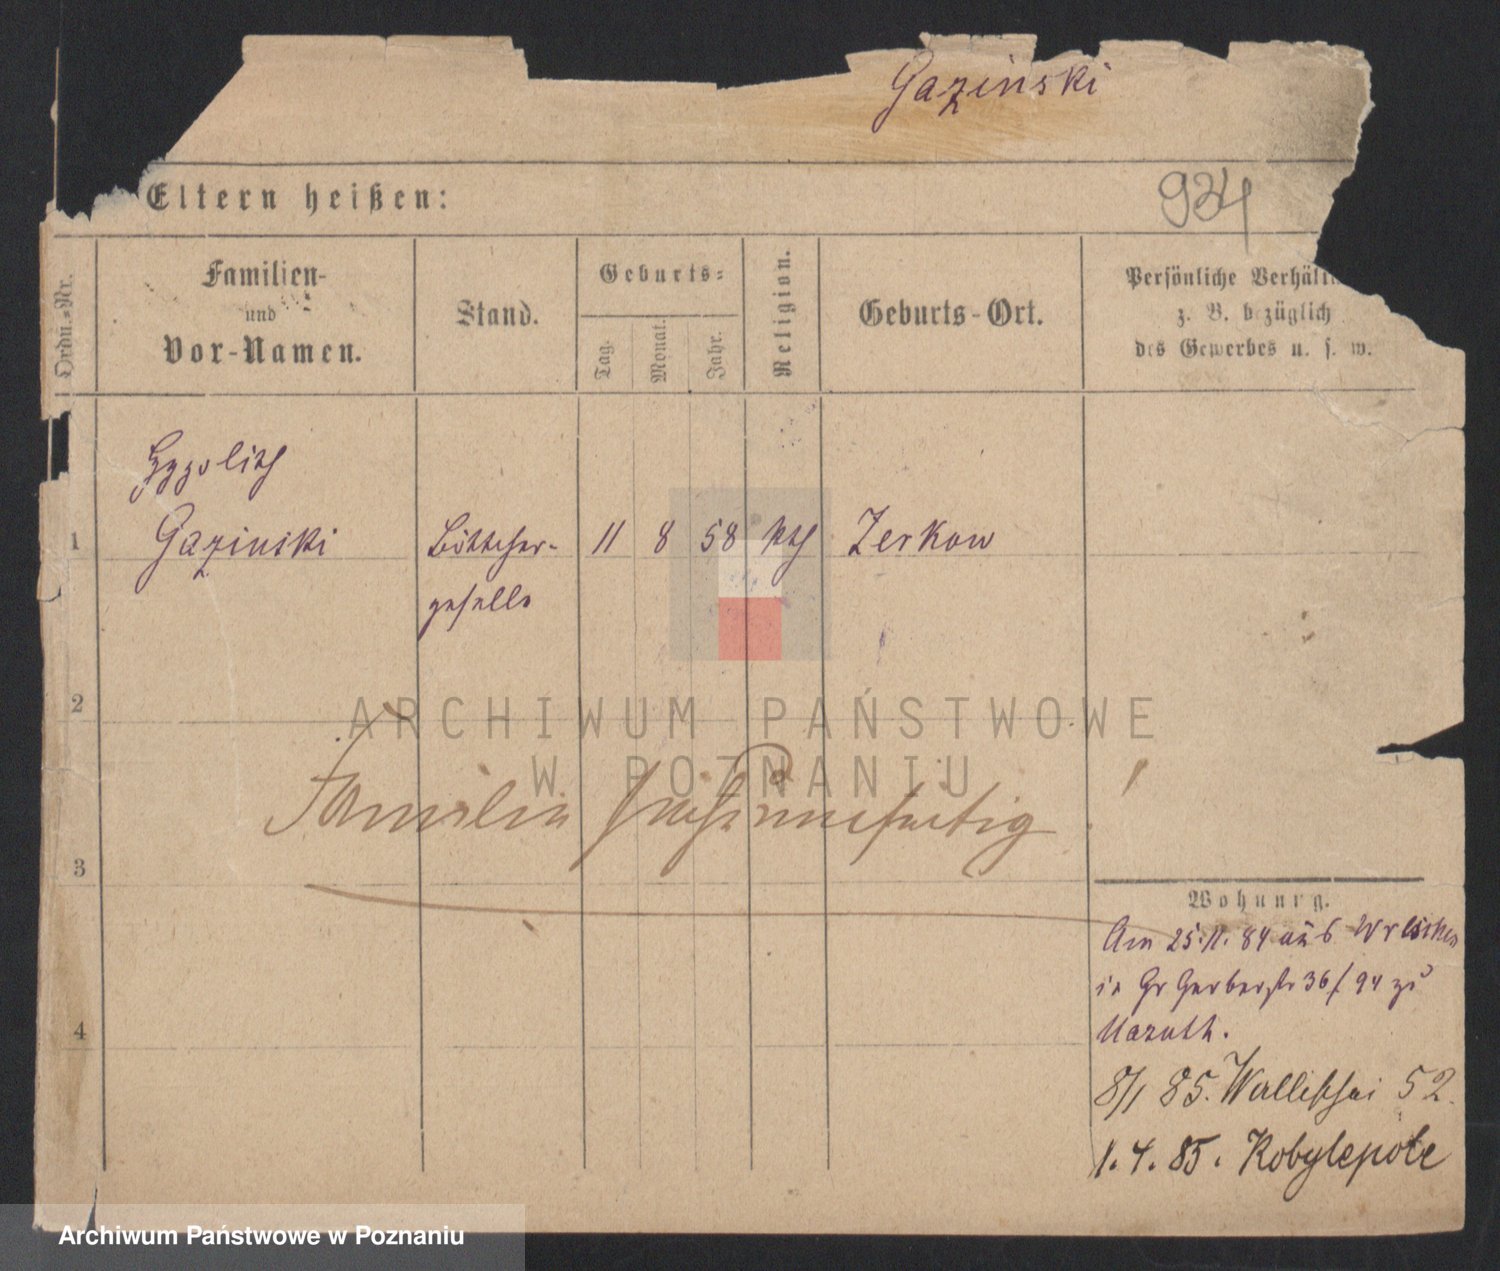 Gazinski
Eltern heißen:
934
Ordn.-Nr.
Familien-
und
Vor-Namen.
Stand.
Geburts-
Tag.
Monat.
Jahr.
Religion.
Geburts-Ort.
Persönliche Verhält
z. B. bezüglich
des Gewerbes u. s. w.
1
Hyppolith
Gazinski
Böttcher-
geselle
11
8
58
kth
Zerkow
2
ARCHIWUM PAŃSTWOWE
W POZNANIU
Familie
3
Wohnung.
Am 25.11.84 aus Wreschen
in Gr Gerberstr 36 / 94 zu
8/1 85. Wallischei 52.
4
1.4.85. Kobylepole
Archiwum Państwowe w Poznaniu